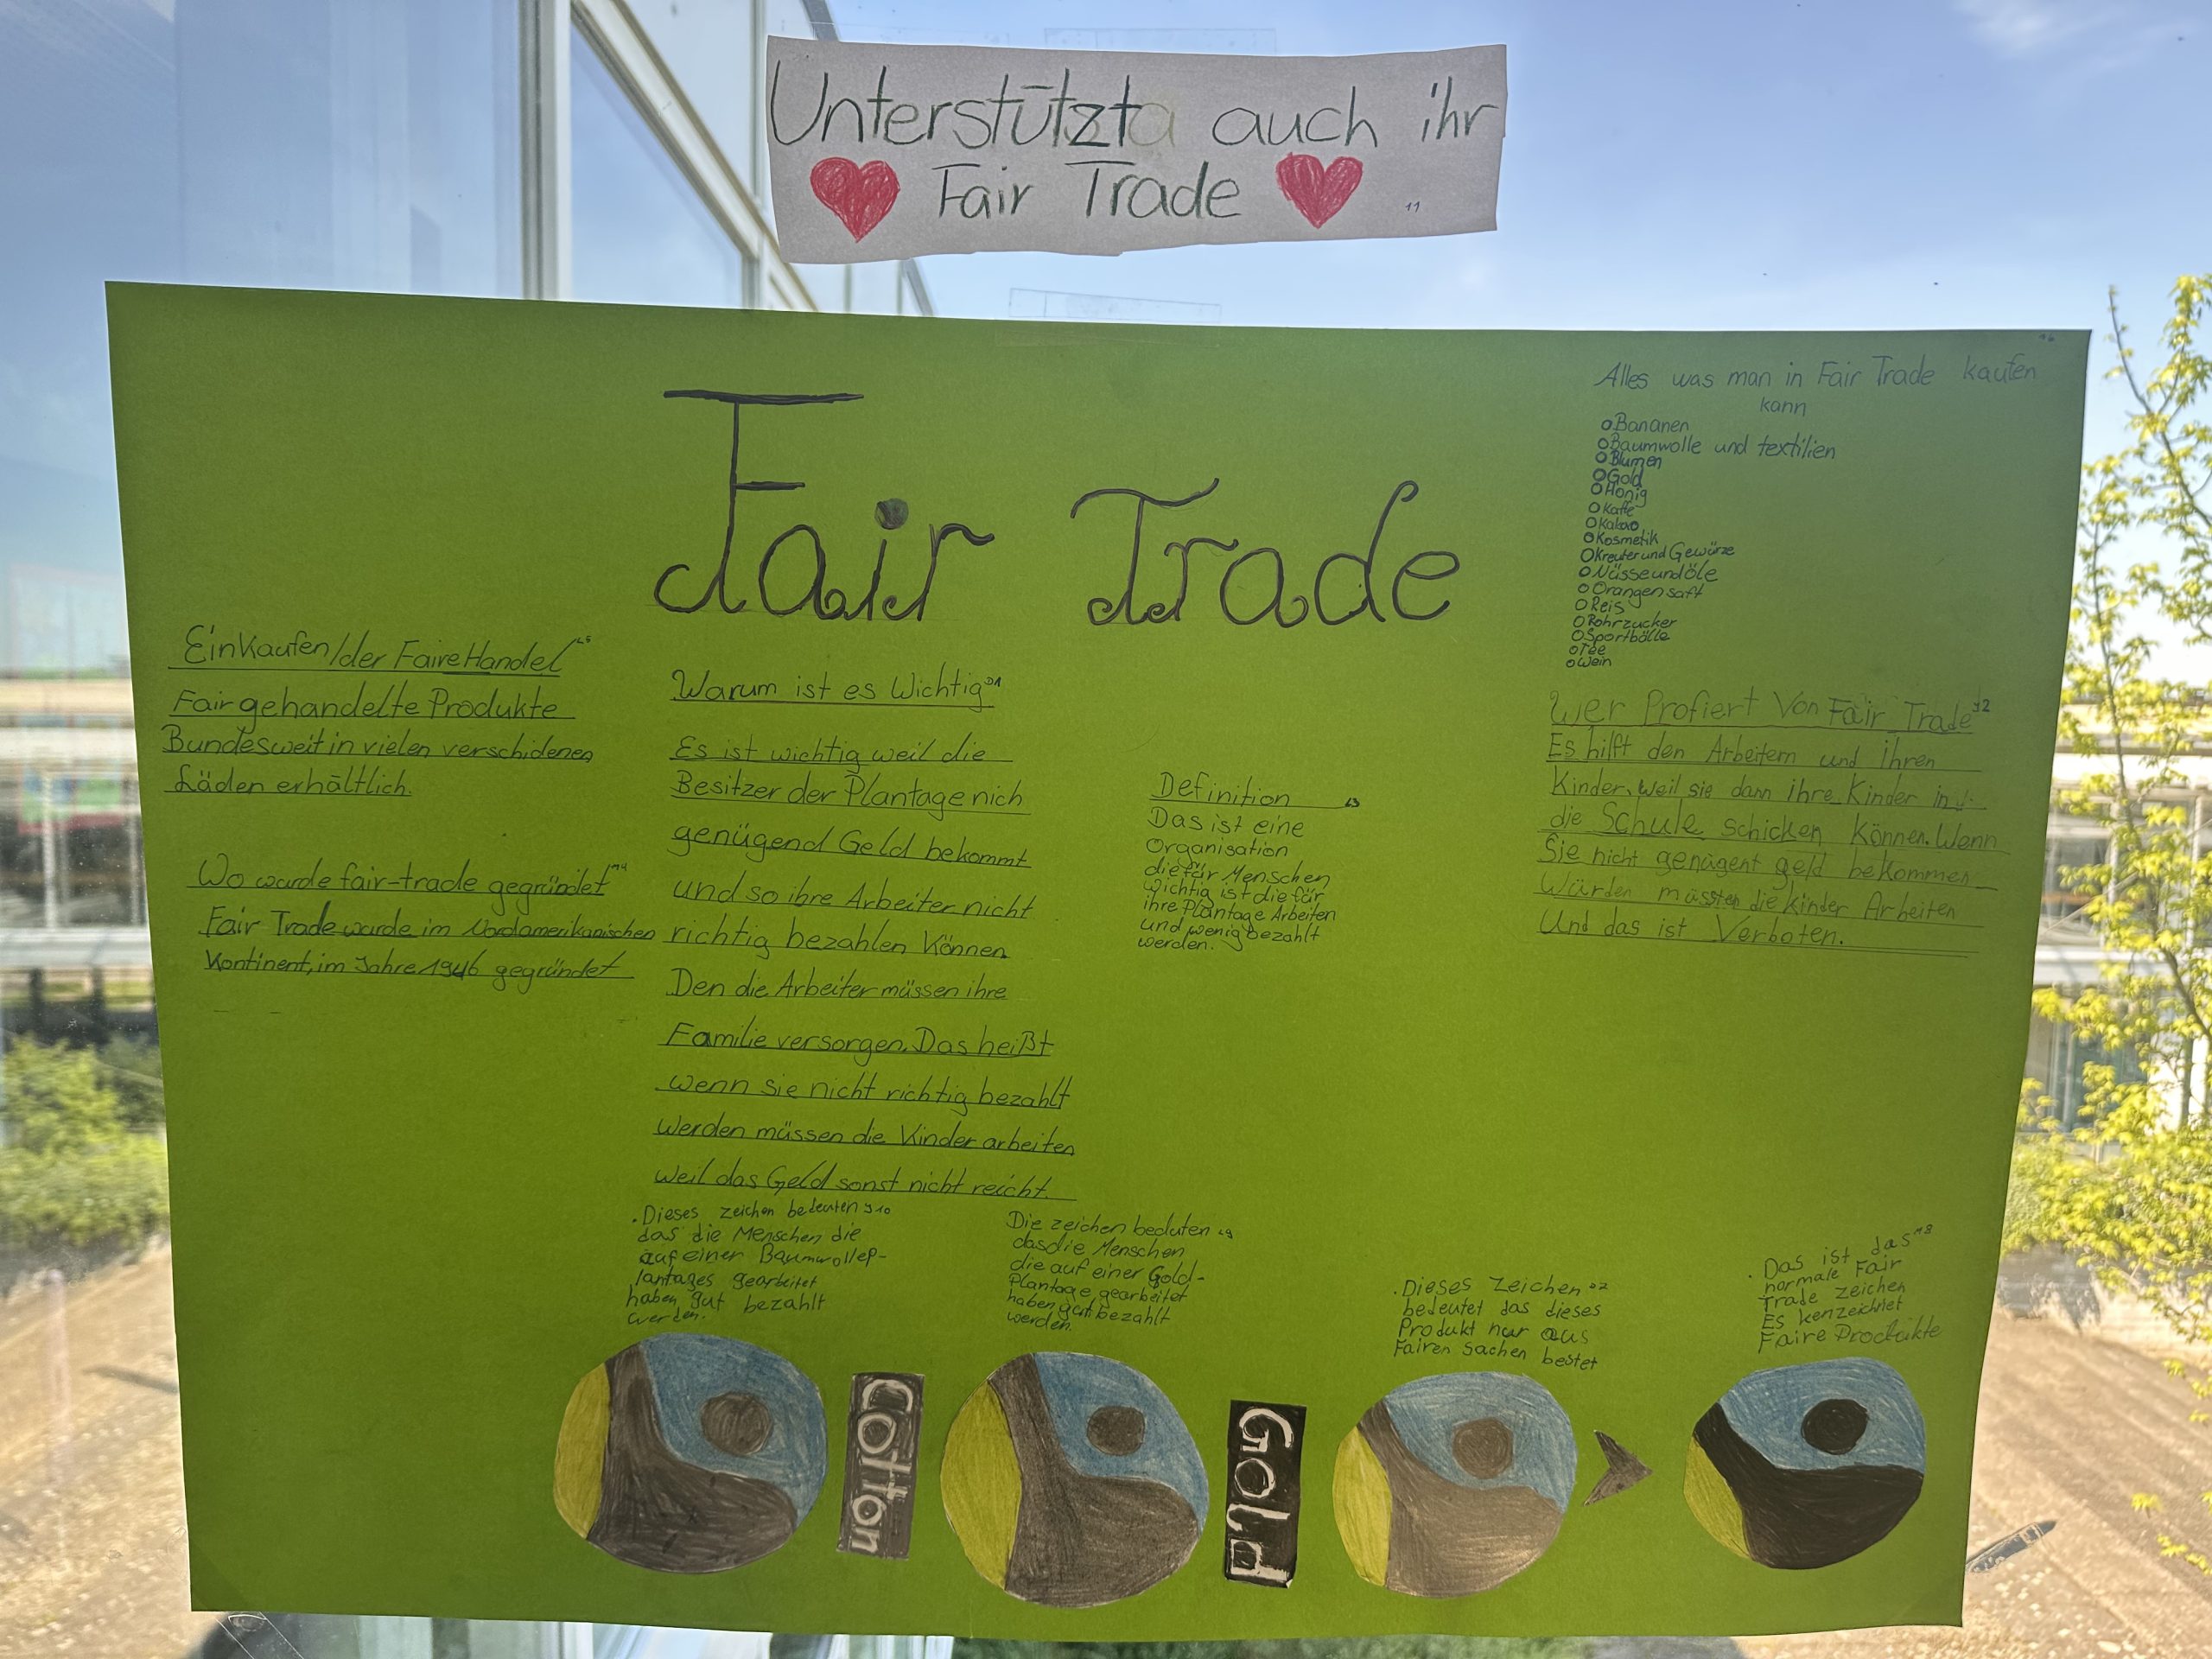 Unterstützt auch ihr
Fair Trade
11
Fair Trade
Einkaufen/der Faire Handel
Fair gehandelte Produkte
Bundesweit in vielen verschidenen
Läden erhältlich.
Wo wurde fair-trade gegründet
Fair Trade wurde im Nordamerikanischen
Kontinent, im Jahre 1946 gegründet
Warum ist es Wichtig
Es ist wichtig weil die
Besitzer der Plantage nich
genügend Geld bekommt
und so ihre Arbeiter nicht
richtig bezahlen Können
Den die Arbeiter müssen ihre
Familie versorgen. Das heißt
wenn sie nicht richtig bezahlt
werden müssen die Kinder arbeiten
weil das Geld sonst nicht reicht.
Definition
Das ist eine
Organisation
die für Menschen
wichtig ist die für
ihre Plantage Arbeiten
und wenig bezahlt
werden.
Alles was man in Fair Trade kaufen
kann
Bananen
Baumwolle und textilien
Blumen
Gold
Honig
Kaffe
Kakao
Kosmetik
Kreuter und Gewürze
Nüsse und öle
Orangensaft
Reis
Rohrzucker
Sportbälle
Tee
Wein
Wer Profiert Von Fair Trade
Es hilft den Arbeitern und ihren
Kinder, weil sie dann ihre Kinder in
die Schule schicken Können. Wenn
Sie nicht genügent geld bekommen
Würden müssten die kinder Arbeiten
Und das ist Verboten.
. Dieses zeichen bedeuten
das die Menschen die
auf einer Baumwollep-
lantages gearbeitet
haben gut bezahlt
werden.
Die zeichen beduten
das die Menschen
die auf einer Gold-
Plantage gearbeitet
haben gut bezahlt
werden.
. Dieses Zeichen
bedeutet das dieses
Produkt nur aus
Fairen sachen bestet
. Das ist das
normale Fair
Trade zeichen
Es kenzeichnet
Faire Produkte
Cotton
Gold